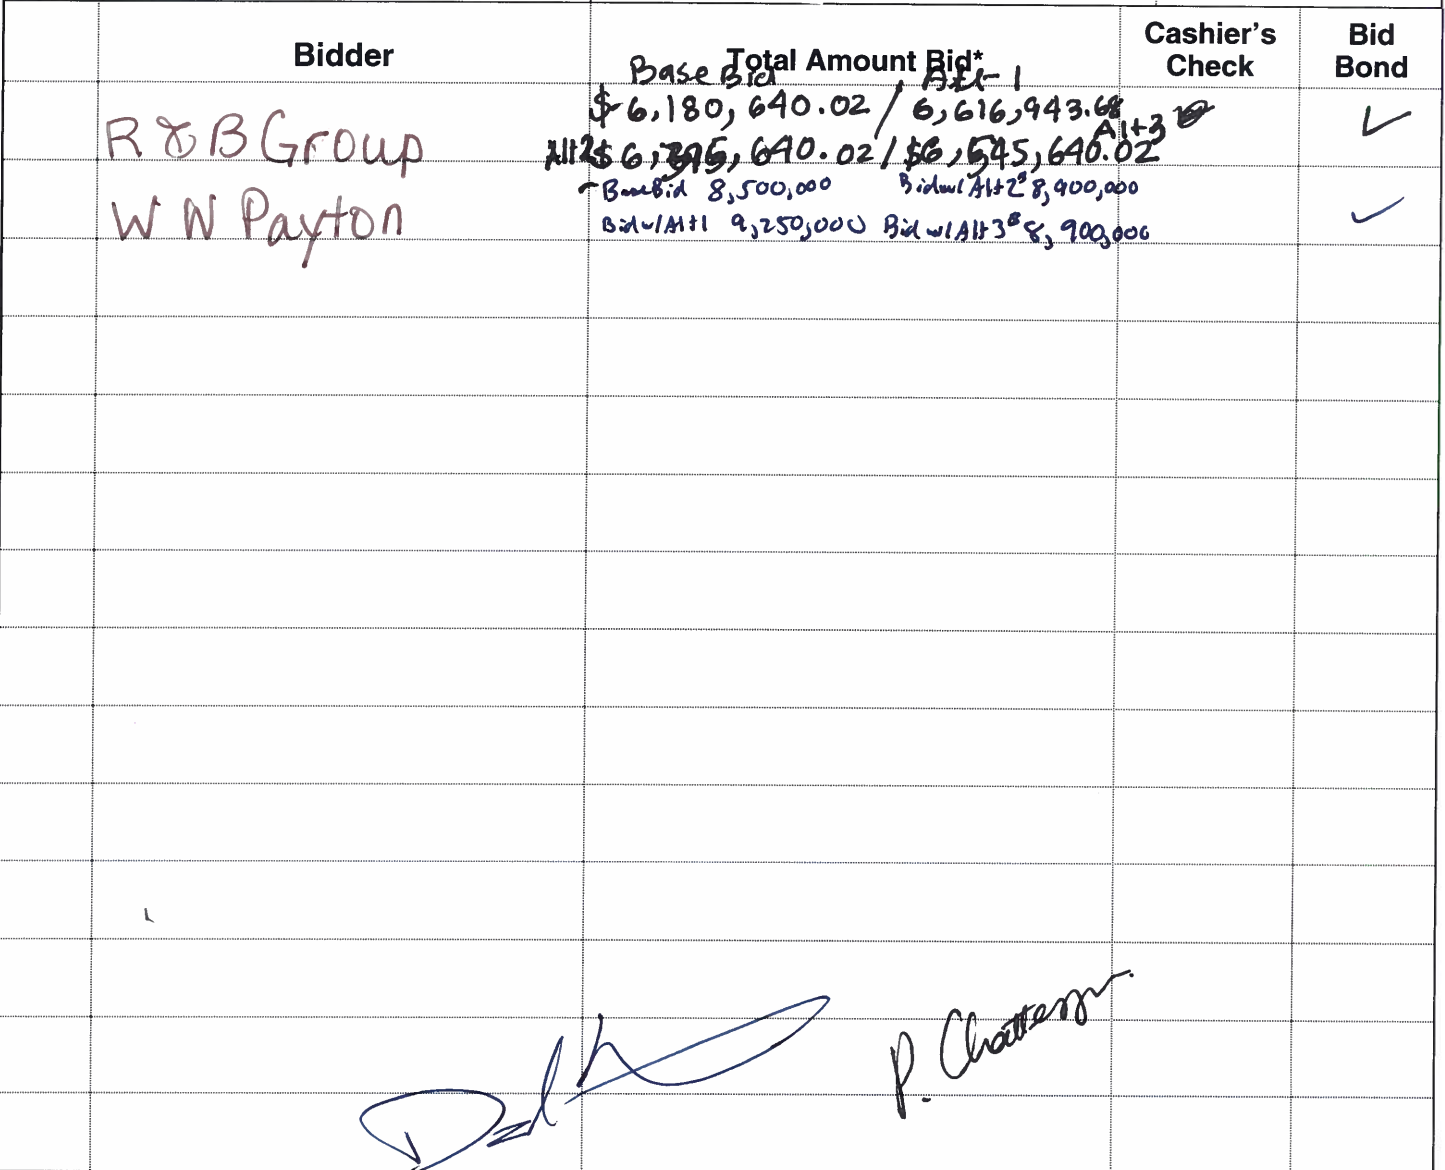 Bidder Total Amount Bid* Cashier's Check Bid Bond
Base Bid Alt-1
R & B Group $ 6,180,640.02 / 6,616,943.68
Alt 2 $ 6,395,640.02 / Alt 3 $6,545,640.02
W N Payton Base Bid 8,500,000 Bid w/ Alt 2 $ 8,900,000
Bid w/ Alt 1 9,250,000 Bid w/ Alt 3 $ 8,900,000
P.